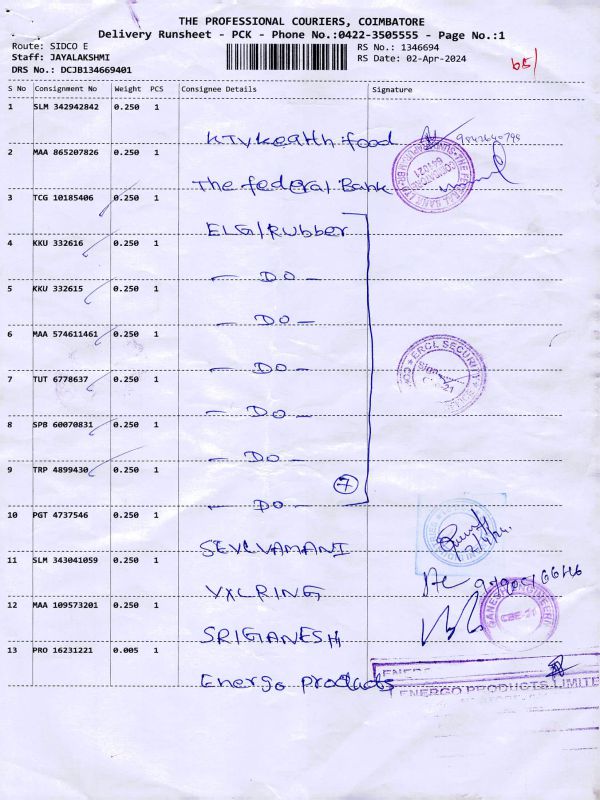 THE PROFESSIONAL COURIERS, COIMBATORE
Delivery Runsheet - PCK - Phone No.:0422-3505555 - Page No.:1
Route: SIDCO E
RS No.: 1346694
Staff: JAYALAKSHMI
RS Date: 02-Apr-2024
DRS No.: DCJB134669401
S No Consignment No Weight PCS Consignee Details Signature
1 SLM 342942842 0.250 1
KTV Health food
2 MAA 865207826 0.250 1
The federal Bank
3 TCG 10185406 0.250 1
ELGI Rubber
4 KKU 332616 0.250 1
- DO -
5 KKU 332615 0.250 1
- DO -
6 MAA 574611461 0.250 1
- DO -
7 TUT 6778637 0.250 1
- DO -
8 SPB 60070831 0.250 1
- DO -
9 TRP 4899430 0.250 1
7
- DO -
10 PGT 4737546 0.250 1
SELVAMANI
11 SLM 343041059 0.250 1
VXLRING
12 MAA 109573201 0.250 1
SRIGANESH
13 PRO 16231221 0.005 1
Energo products
ERCL SECURITY
CBE-21
ENERGO PRODUCTS LIMITE